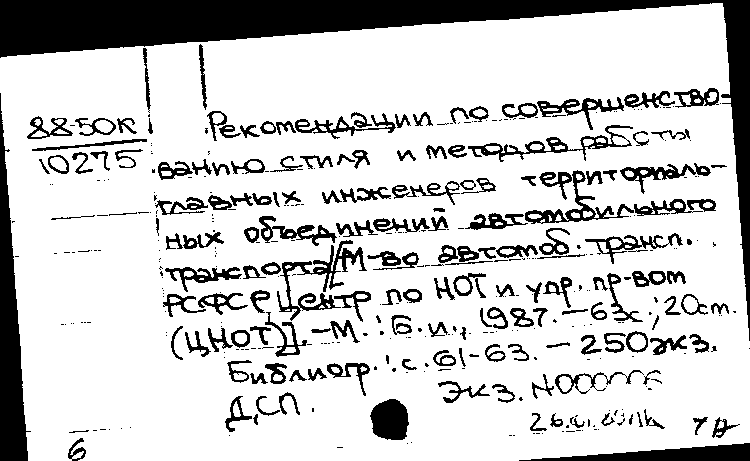 88-50К
10275
Рекомендации по совершенство-
ванию стиля и методов работы
главных инженеров территориаль-
ных объединений автомобильного
транспорта // [М-во автомоб. трансп.
РСФСР, Центр по НОТ и упр. пр-вом
(ЦНОТ)]. - М. : Б.и., 1987. - 63с.; 20см.
Библиогр.: с. 61-63. - 250 экз.
ДСП. Экз. N000006
6